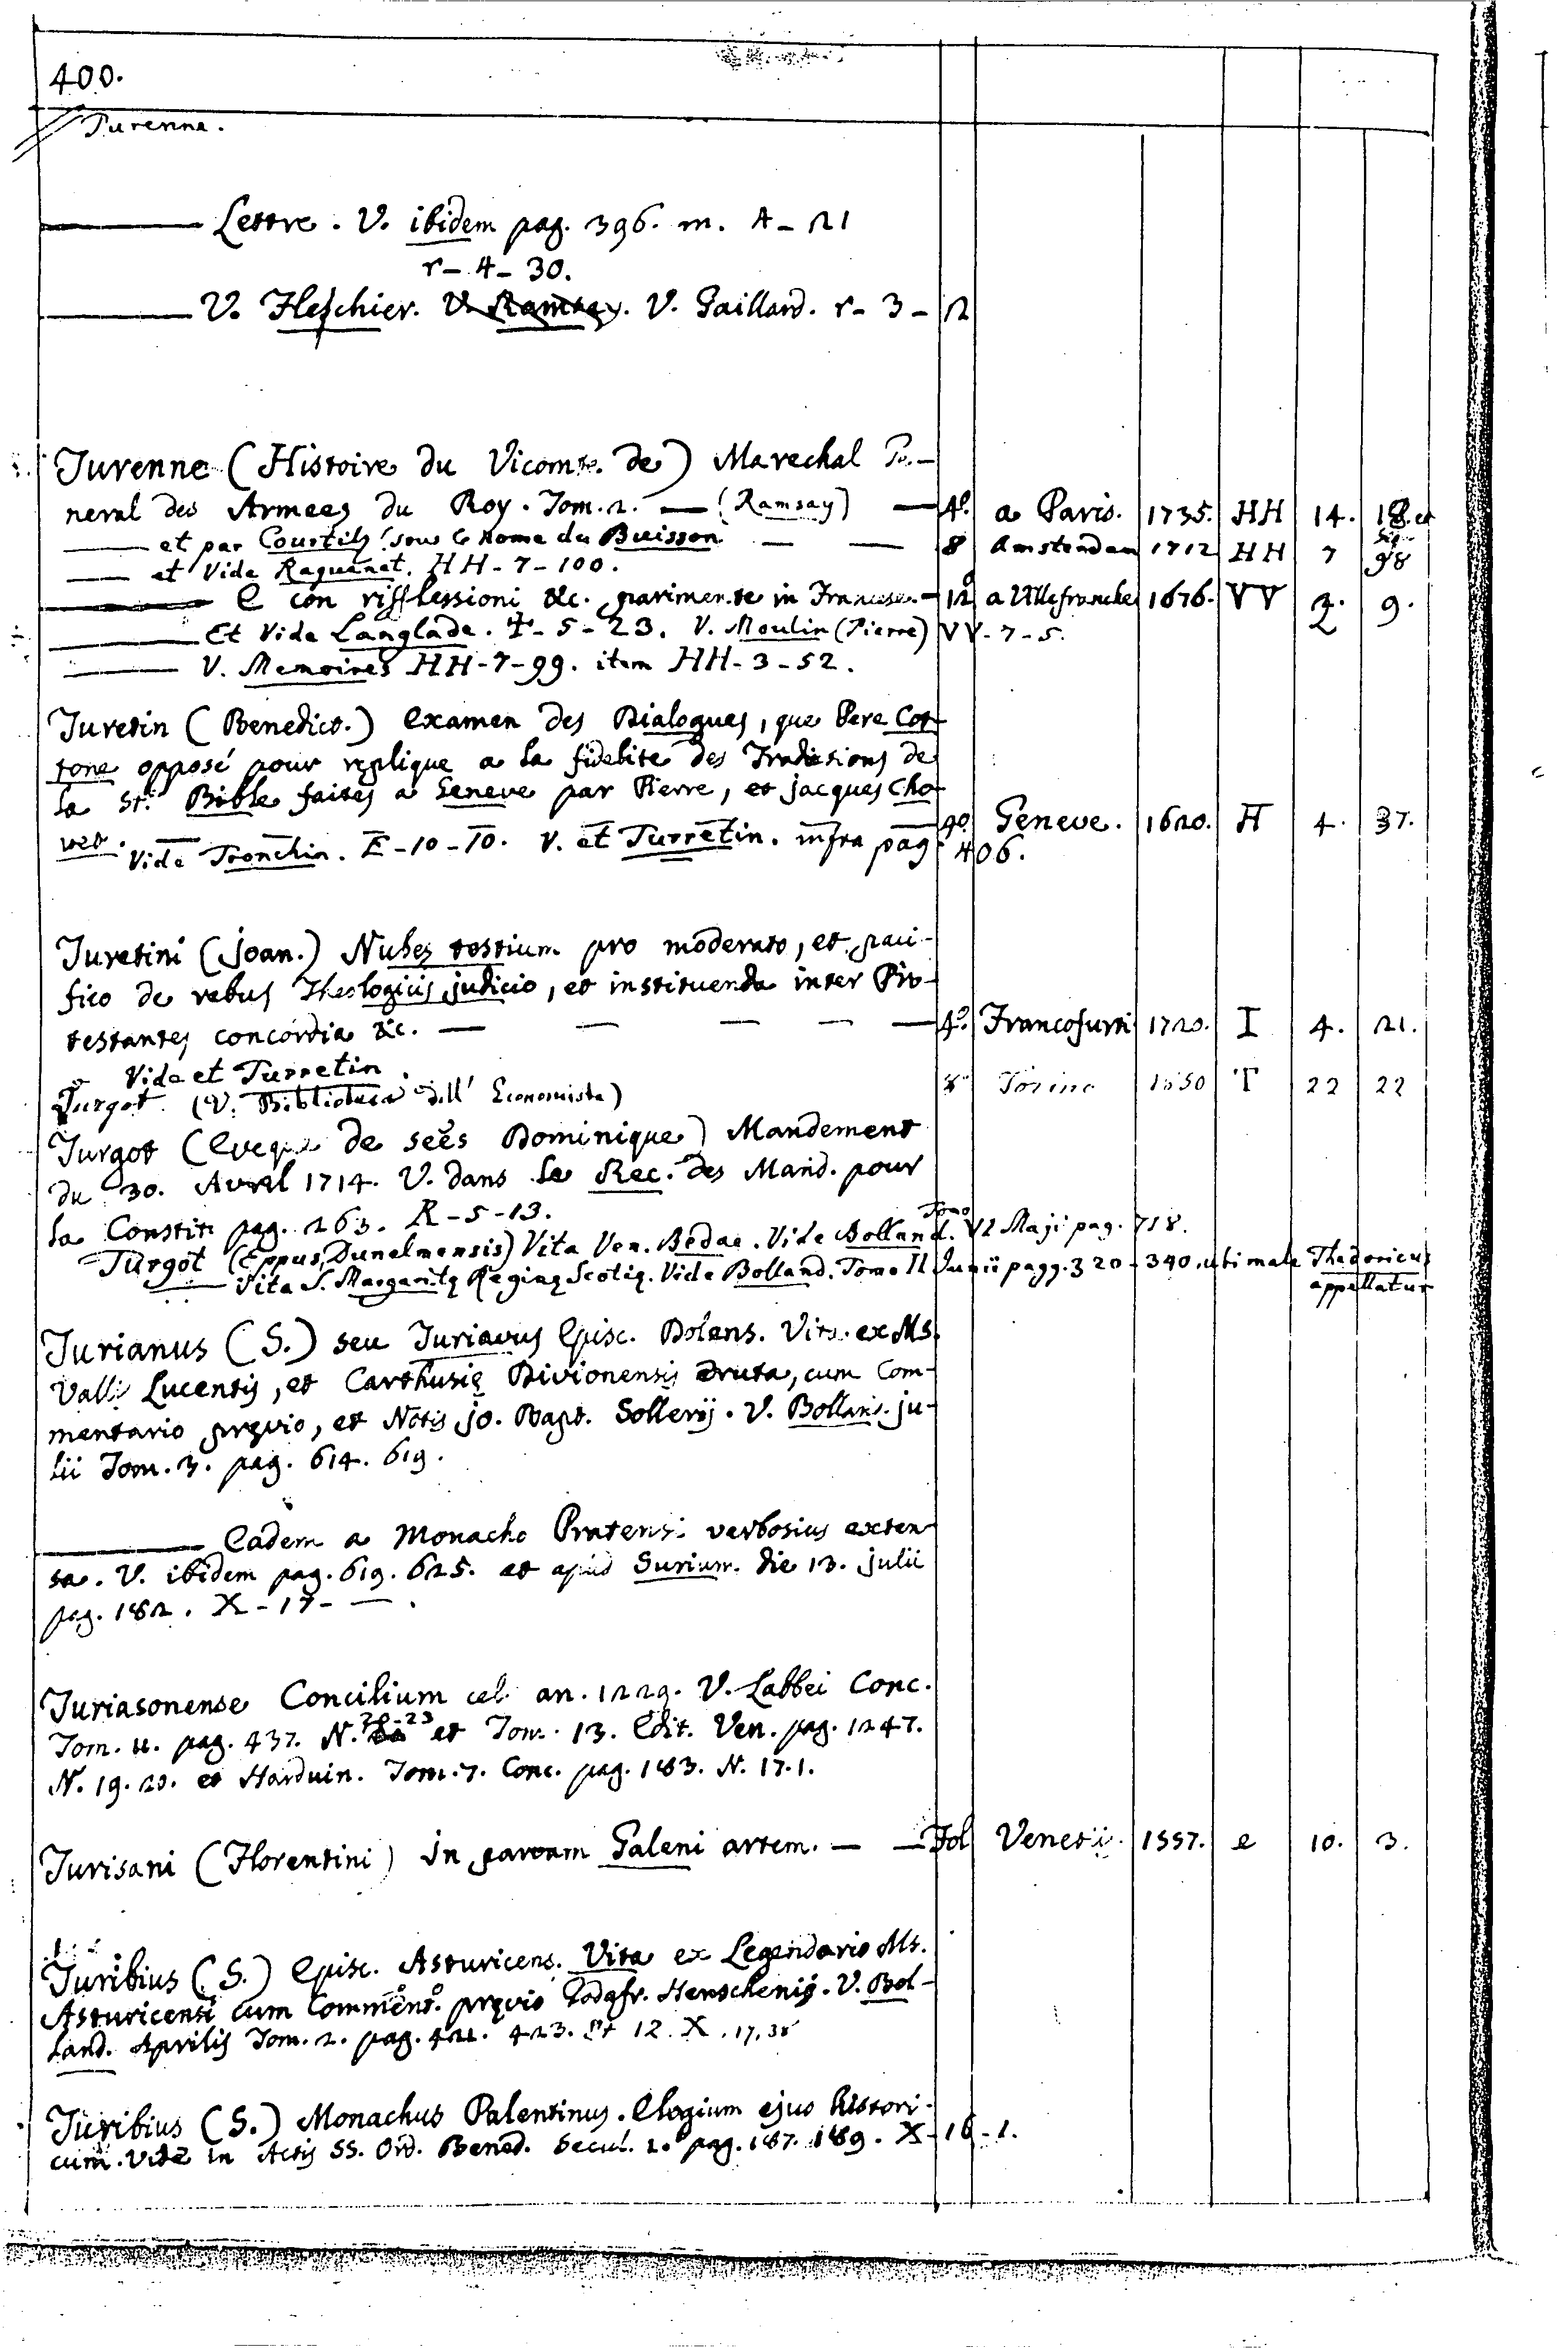 400.
Turenne.
——— Lettre. V. ibidem pag. 396. m. A-21
r-4-30.
——— V. Fleschier. V. Ramsay. V. Gaillard. r-3-12
Turenne (Histoire du Vicomte de) Marechal Ge-
neral des Armees du Roy. Tom. 2. — (Ramsay) — 4º. a Paris. 1735. HH 14. 18. et seq.
——— et par Courtilz sous le nome du Buisson — — 8 Amsterdam 1712 HH 7 98
——— et Vide Raguenet. HH-7-100.
——— E con rifflessioni &c. parimente in Francese. — 12º a Villefranche 1676. VV 2. 9.
——— Et Vide Langlade. T-5-23. V. Moulin (Pierre) VV-7-5.
——— V. Memoires HH-7-99. item HH-3-52.
Turetin (Benedict.) Examen des Dialogues, que Pere Cot-
tone opposé pour replique a la fidelite des Tradutions de
la St. Bible faites a Geneve par Pierre, et jacques Cho-
vet. — — — — — — 4º. Geneve. 1620. H 4. 37.
Vide Tronchin. E-10-10. V. et Turretin. infra pag. 406.
Turetini (Joan.) Nubes testium pro moderato, et paci-
fico de rebus Theologiis judicio, et instituenda inter Pro-
testantes concordia &c. — — — — — 4º. Francofurti 1720. I 4. 21.
Vide et Turretin.
Turgot. (V. Biblioteca dell' Economista) 8º Torino 1850 T 22 22
Turgot (Eveque de seës Dominique) Mandement
du 30. Avril 1714. V. dans le Rec. des Mand. pour
la Constit. pag. 263. R-5-13.
Turgot (Eppus Dunelmensis) Vita Ven. Bedae. Vide Bolland. Tomo VI Maji pag. 718.
——— Vita S. Margaritę Reginę Scotię. Vide Bolland. Tomo II Junii pagg. 320-340. ubi male Thedoricus appellatur
Turianus (S.) seu Turiavus Episc. Dolens. Vita. ex Ms.
Valli Lucentis, et Carthusię Divionensis eruta, cum Com-
mentario pręvio, et Notis jo. Bapt. Sollerij. V. Bolland. ju-
lii Tom. 3. pag. 614. 619.
——— Eadem a Monacho Pratensi verbosius exten-
sa. V. ibidem pag. 619. 625. et apud Surium. die 13. julii
pag. 182. X-17- — .
Turiasonense Concilium cel. an. 1229. V. Labbei Conc.
Tom. 11. pag. 437. N. 20-23 et Tom. 13. Edit. Ven. pag. 1247.
N. 19. 20. et Harduin. Tom. 7. Conc. pag. 183. N. 17. 1.
Turisani (Florentini) in parvam Galeni artem. — — Fol Venetii. 1557. e 10. 3.
Turibius (S.) Episc. Asturicens. Vita ex Legendario Ms.
Asturicensi cum Comment. pręvio Godefr. Henschenij. V. Bol-
land. Aprilis Tom. 2. pag. 421. 423. Et 12. X. 17. 38
Turibius (S.) Monachus Palentinus. Elogium ejus histori-
cum. Vide in Actis SS. Ord. Bened. Secul. 1. pag. 187. 189. X-16-1.